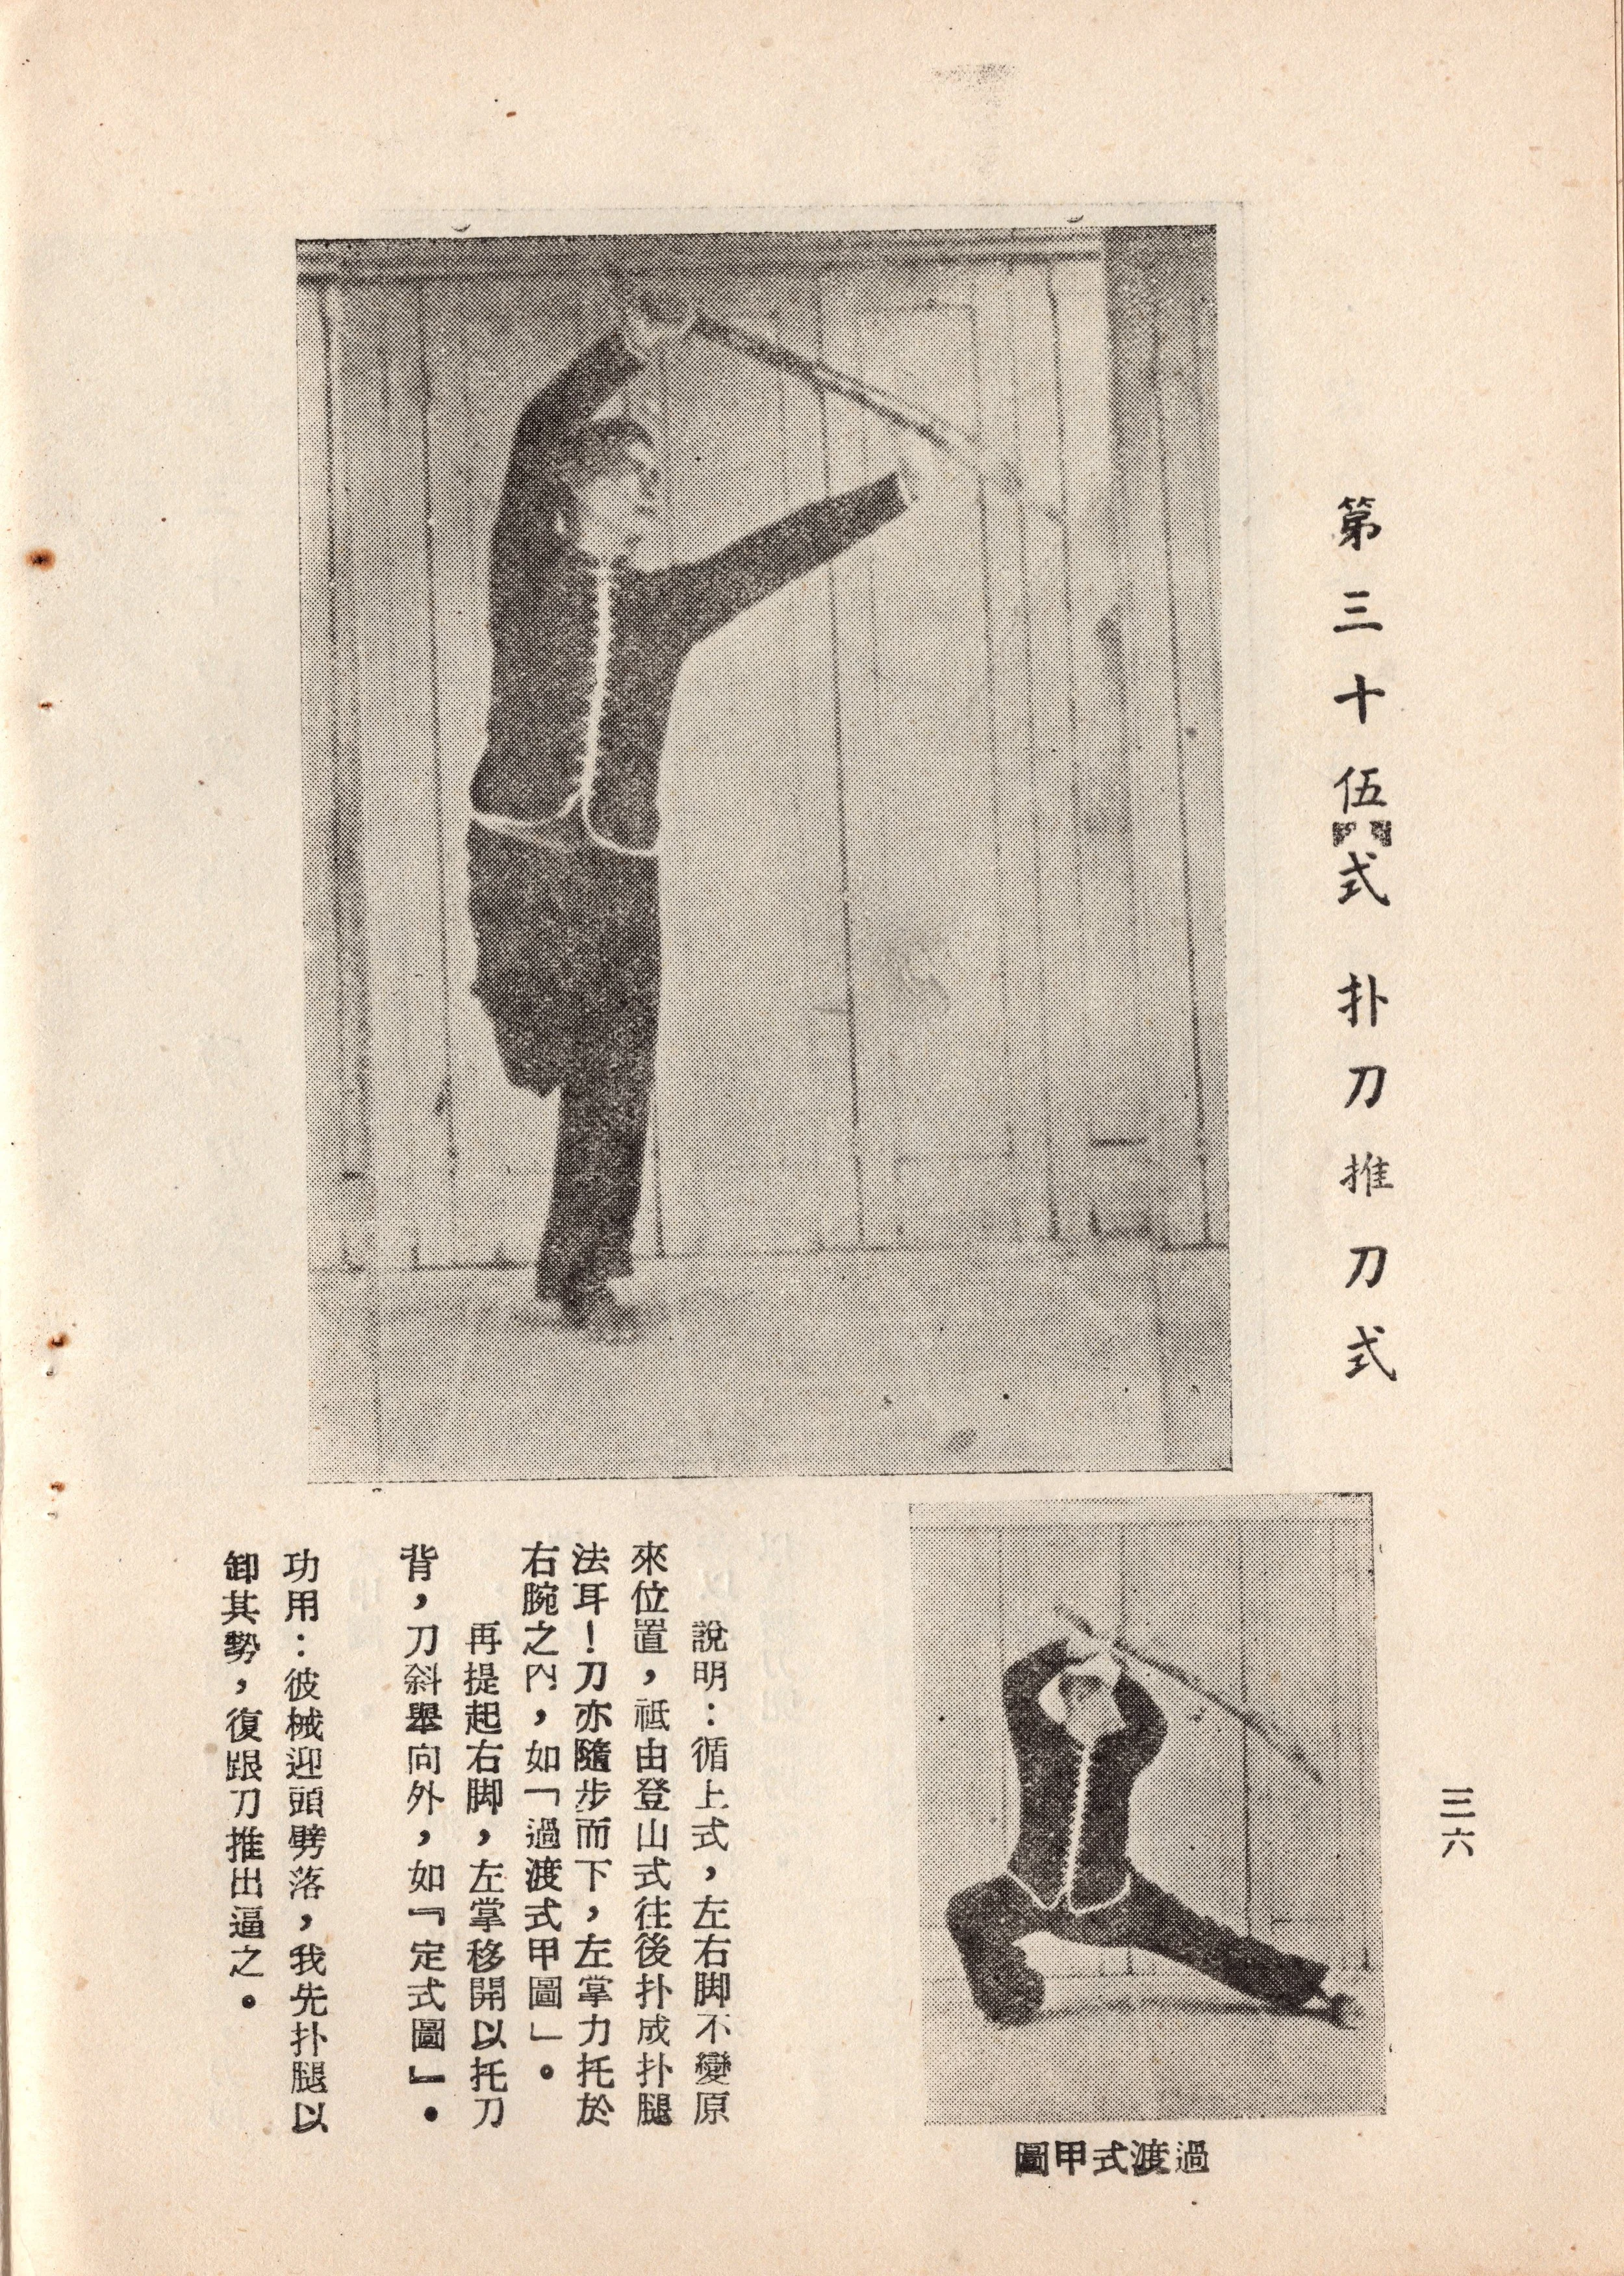 第三十伍式 扑刀推刀式
三六
過渡式甲圖
說明：循上式，左右脚不變原
來位置，祗由登山式往後扑成扑腿
法耳！刀亦隨步而下，左掌力托於
右腕之內，如「過渡式甲圖」。
再提起右脚，左掌移開以托刀
背，刀斜舉向外，如『定式圖』。
功用：彼械迎頭劈落，我先扑腿以
卸其勢，復跟刀推出逼之。